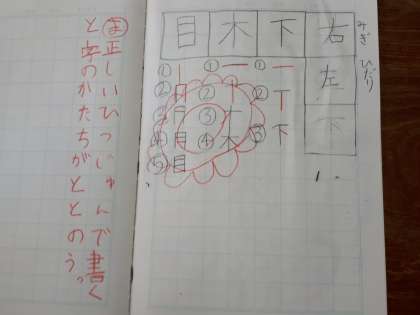 みぎ ひだり
右左下
下
① 一
② 丅
③ 下
木
① 一
② 十
③ オ
④ 木
目
① 丨
② 冂
③ 月
④ 目
⑤ 目
ま 正しいひつじゅんで書く
と字のかたちがととのう。